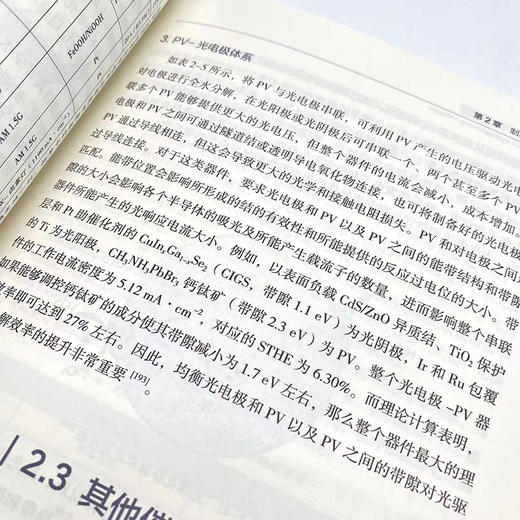 FeOOH/NiOOH
Pt
AM 1.5G
AM 1.5G
第2章 制
3. PV-光电极体系
如表2-5所示，将PV与光电极串联，可利用PV产生的电压驱动光电
对电极进行全水分解，在光阳极或光阴极后可串联一个、两个甚至多个PV
联多个PV能够提供更大的光电压，但整个器件的电流会减小，成本增加。
电极和PV之间可通过隧道结或透明导电氧化物连接，也可将制备好的光电极
PV通过导线相连，但这会导致更大的光学和接触电阻损失。PV和对电极之间
过导线连接。对于这类器件，要求光电极和PV以及PV之间的能带结构和带隙
匹配。能带位置会影响所形成的结的有效性和所能提供的反应过电位的大小。带
隙的大小会影响各个半导体的吸光及所能产生载流子的数量，进而影响整个串联
器件所能产生的光响应电流大小。例如，以表面负载CdS/ZnO异质结、TiO₂保护
层和Pt助催化剂的CuInₓGa₁₋ₓSe₂（CIGS，带隙1.1 eV）为光阴极，Ir和Ru包覆
的Ti为光阳极，CH₃NH₃PbBr₃钙钛矿（带隙2.3 eV）为PV。整个光电极-PV器
件的工作电流密度为5.12 mA·cm⁻²，对应的STHE为6.30%。而理论计算表明，
如果能够调控钙钛矿的成分使其带隙减小为1.7 eV左右，那么整个器件最大的理
效率即可达到27%左右。因此，均衡光电极和PV以及PV之间的带隙对光驱
解效率的提升非常重要[193]。
2.3 其他